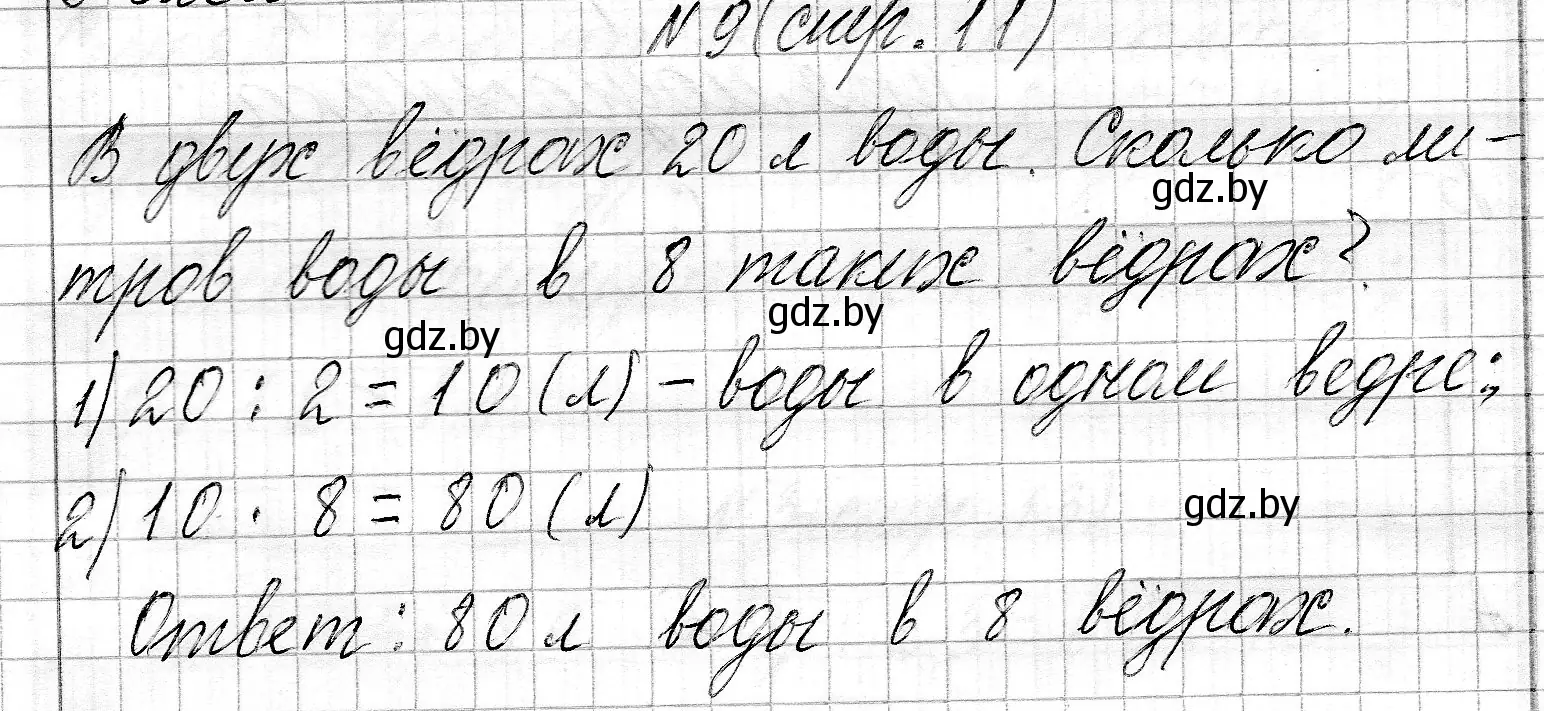 № 9 (стр. 11)
В двух вёдрах 20 л воды. Сколько ли-
gdz.by
тров воды в 8 таких вёдрах?
gdz.by
gdz.by
1) 20 : 2 = 10 (л) – воды в одном ведре;
2) 10 · 8 = 80 (л)
gdz.by
Ответ: 80 л воды в 8 вёдрах.